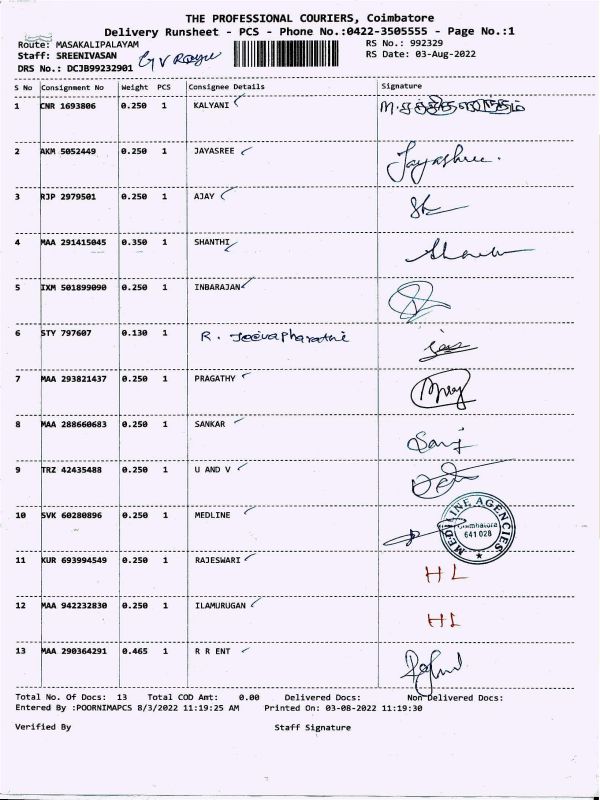 THE PROFESSIONAL COURIERS, Coimbatore
Delivery Runsheet - PCS - Phone No.:0422-3505555 - Page No.:1
Route: MASAKALIPALAYAM RS No.: 992329
Staff: SREENIVASAN G V Raju RS Date: 03-Aug-2022
DRS No.: DCJB99232901
S No Consignment No Weight PCS Consignee Details Signature
1 CNR 1693806 0.250 1 KALYANI
2 AKM 5052449 0.250 1 JAYASREE Jayashree.
3 RJP 2979501 0.250 1 AJAY
4 MAA 291415045 0.350 1 SHANTHI
5 IXM 501899090 0.250 1 INBARAJAN
6 STY 797607 0.130 1 R. Jeevapharathi
7 MAA 293821437 0.250 1 PRAGATHY
8 MAA 288660683 0.250 1 SANKAR
9 TRZ 42435488 0.250 1 U AND V
10 SVK 60280896 0.250 1 MEDLINE MEDLINE AGENCIES Coimbatore 641 028
11 KUR 693994549 0.250 1 RAJESWARI HL
12 MAA 942232830 0.250 1 ILAMURUGAN HL
13 MAA 290364291 0.465 1 R R ENT
Total No. Of Docs: 13 Total COD Amt: 0.00 Delivered Docs: Non Delivered Docs:
Entered By :POORNIMAPCS 8/3/2022 11:19:25 AM Printed On: 03-08-2022 11:19:30
Verified By Staff Signature